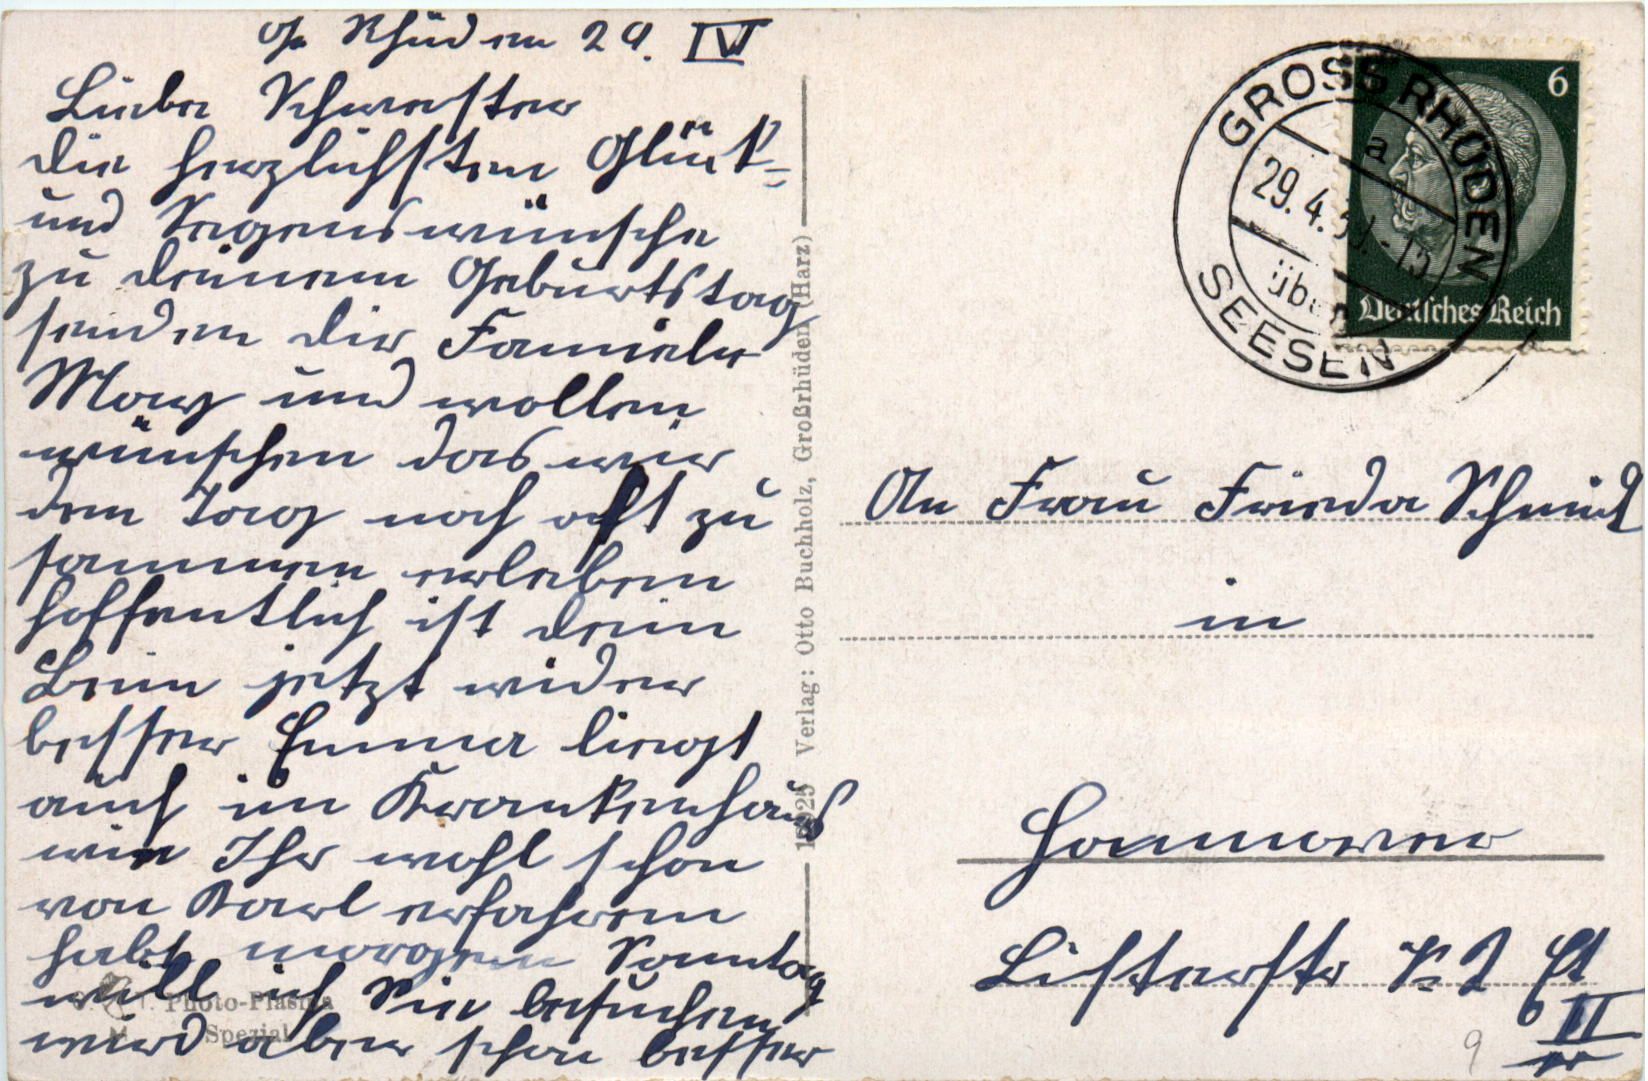 Gr Rhüden 29. IV
Liebe Schwester
die herzlichsten Glück=
und Segenswünsche
zu deinem Geburtstag
senden dir Familie
May und wollen
wünschen das wir
den Tag noch oft zu
sammen erleben
hoffentlich ist dein
Bein jetzt wider
besser Emma liegt
auch im Krankenhaus
wie Ihr wohl schon
von Karl erfahren
habt morgen Sonntag
will ich Sie besuchen
wird aber schon besser
Photo-Plasma
Spezial
Verlag: Otto Buchholz, Großrhüden (Harz)
GROSS RHÜDEN
a
29.4.
über
SEESEN
6
Deutsches Reich
An Frau Frieda Schmidt
in
Hannover
Listerstr
II
9